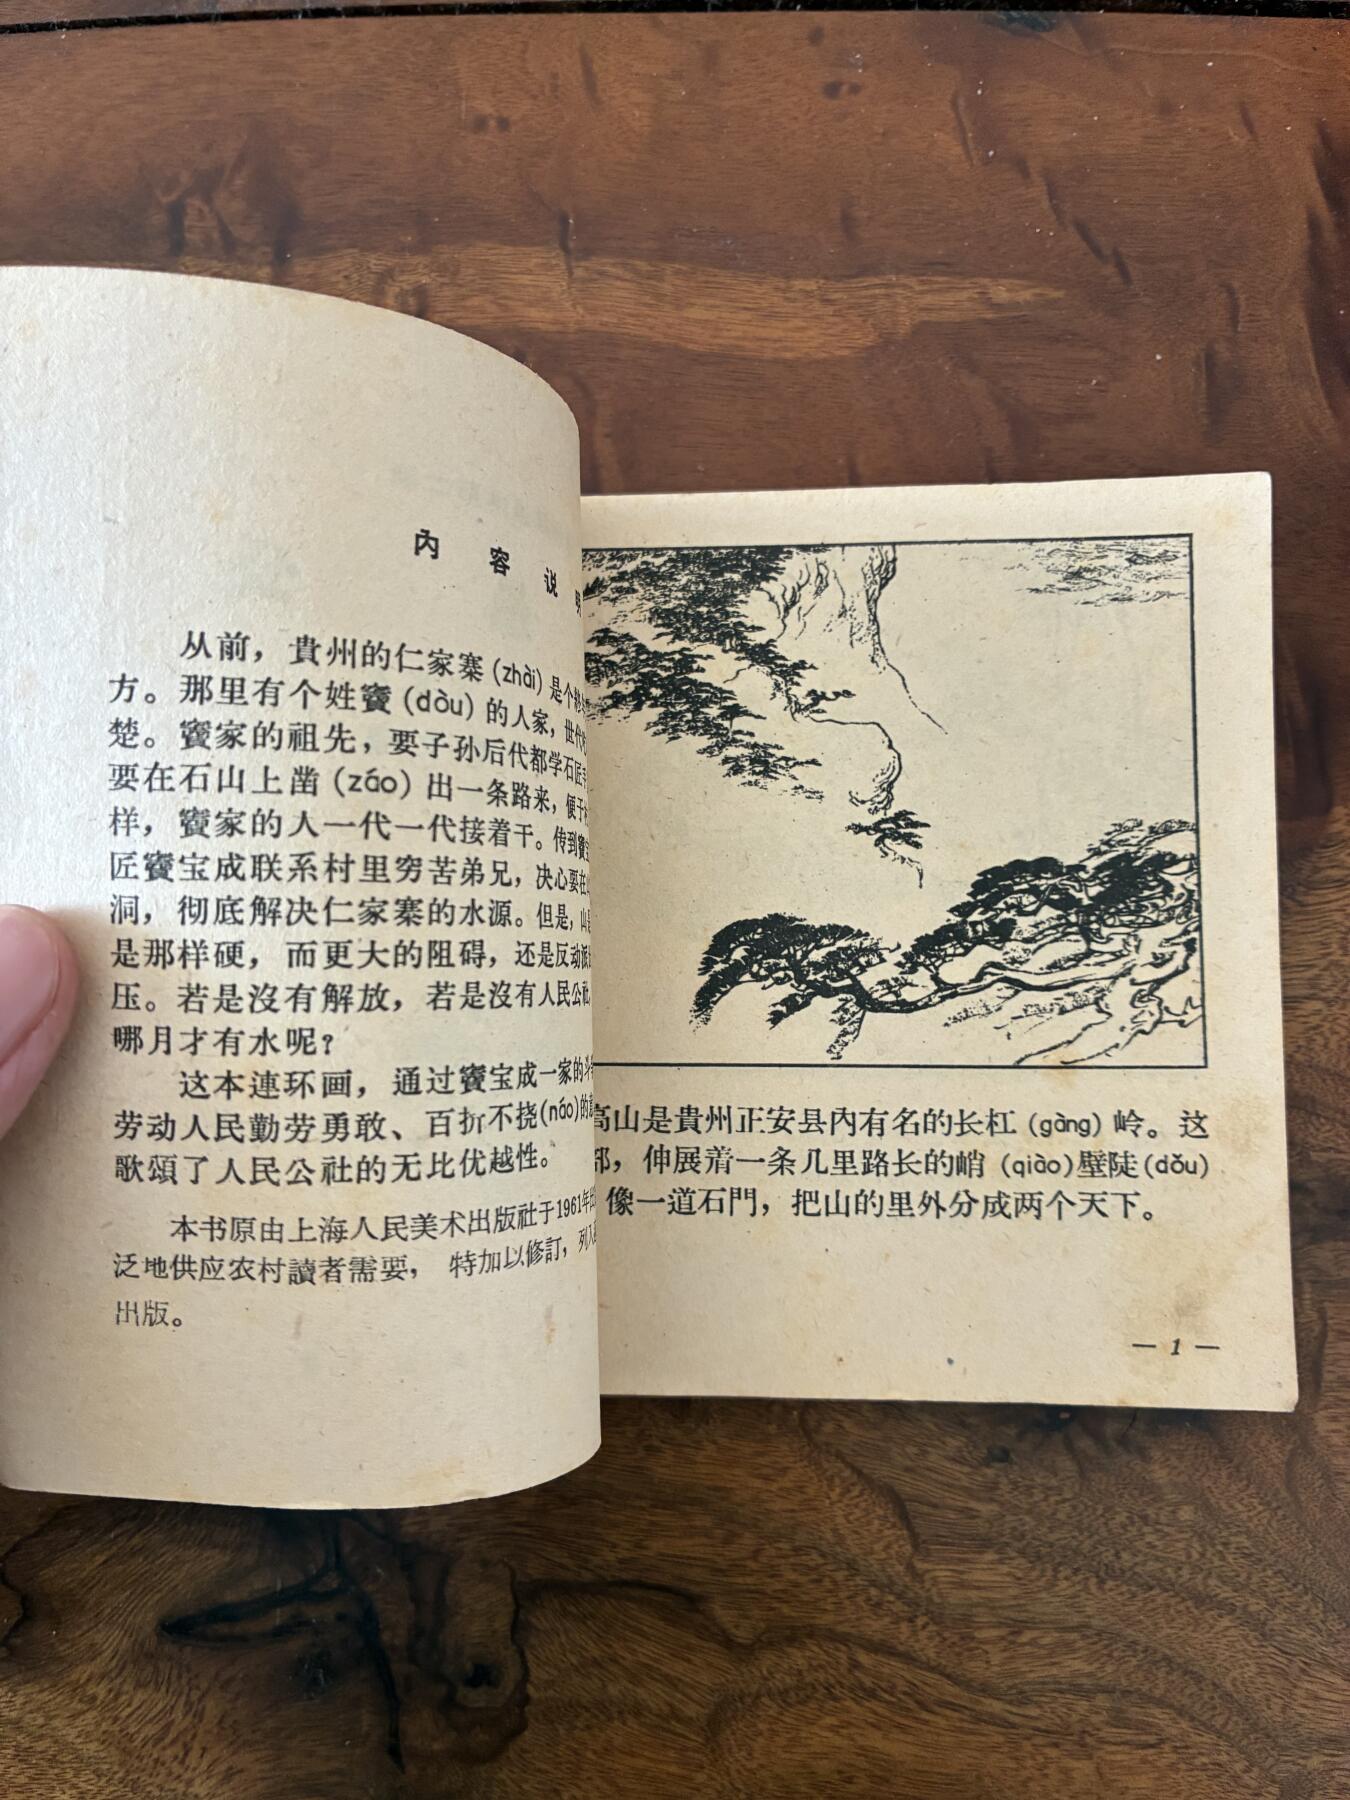 內容说
从前，貴州的仁家寨(zhài)是个
方。那里有个姓竇(dòu)的人家，世代
楚。竇家的祖先，要子孙后代都学石匠
要在石山上凿(záo)出一条路来，便于
样，竇家的人一代一代接着干。传到竇
匠竇宝成联系村里穷苦弟兄，决心要在
洞，彻底解决仁家寨的水源。但是，山
是那样硬，而更大的阻碍，还是反动派
压。若是沒有解放，若是沒有人民公社
哪月才有水呢？
这本連环画，通过竇宝成一家的斗
劳动人民勤劳勇敢、百折不挠(náo)的
歌頌了人民公社的无比优越性。
本书原由上海人民美术出版社于1961年
泛地供应农村讀者需要，特加以修訂，列入
出版。
高山是貴州正安县內有名的长杠(gàng)岭。这
部，伸展着一条几里路长的峭(qiào)壁陡(dǒu)
像一道石門，把山的里外分成两个天下。
— 1 —